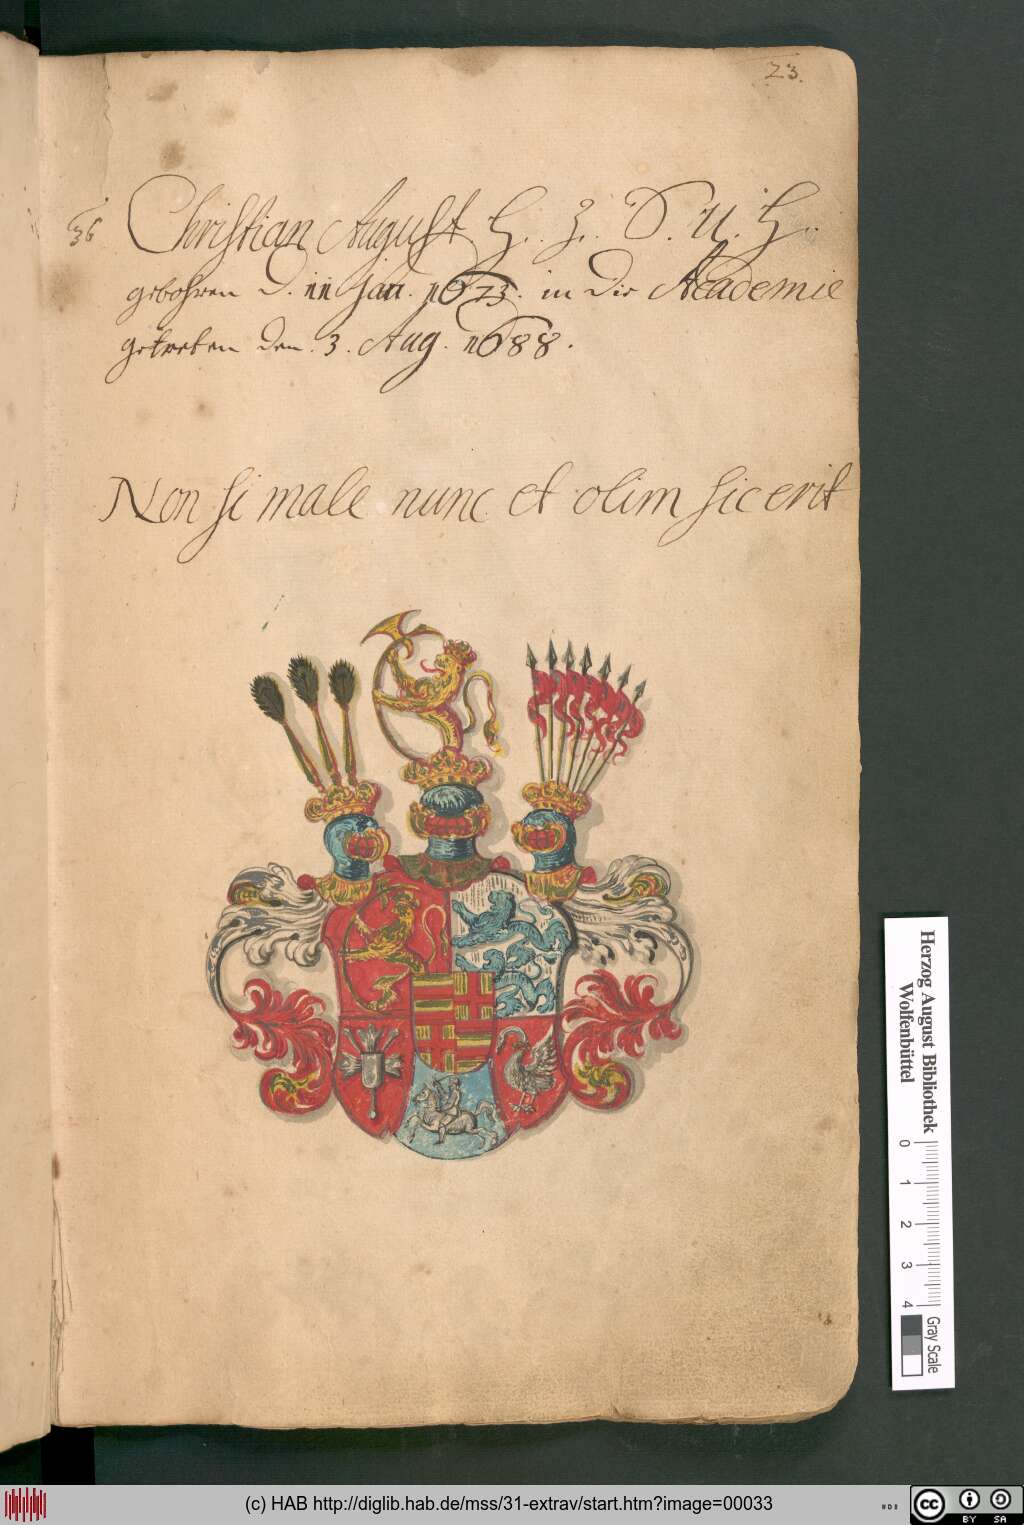 23.
36
Christian August H. z. S. u. H.
gebohren d. 11 Jan. 1673. in die Academie
getreten den. 3. Aug. 1688.
Non si male nunc et olim sic erit
Herzog August Bibliothek
Wolfenbüttel
0 1 2 3 4
Gray Scale
(c) HAB http://diglib.hab.de/mss/31-extrav/start.htm?image=00033
cc BY SA